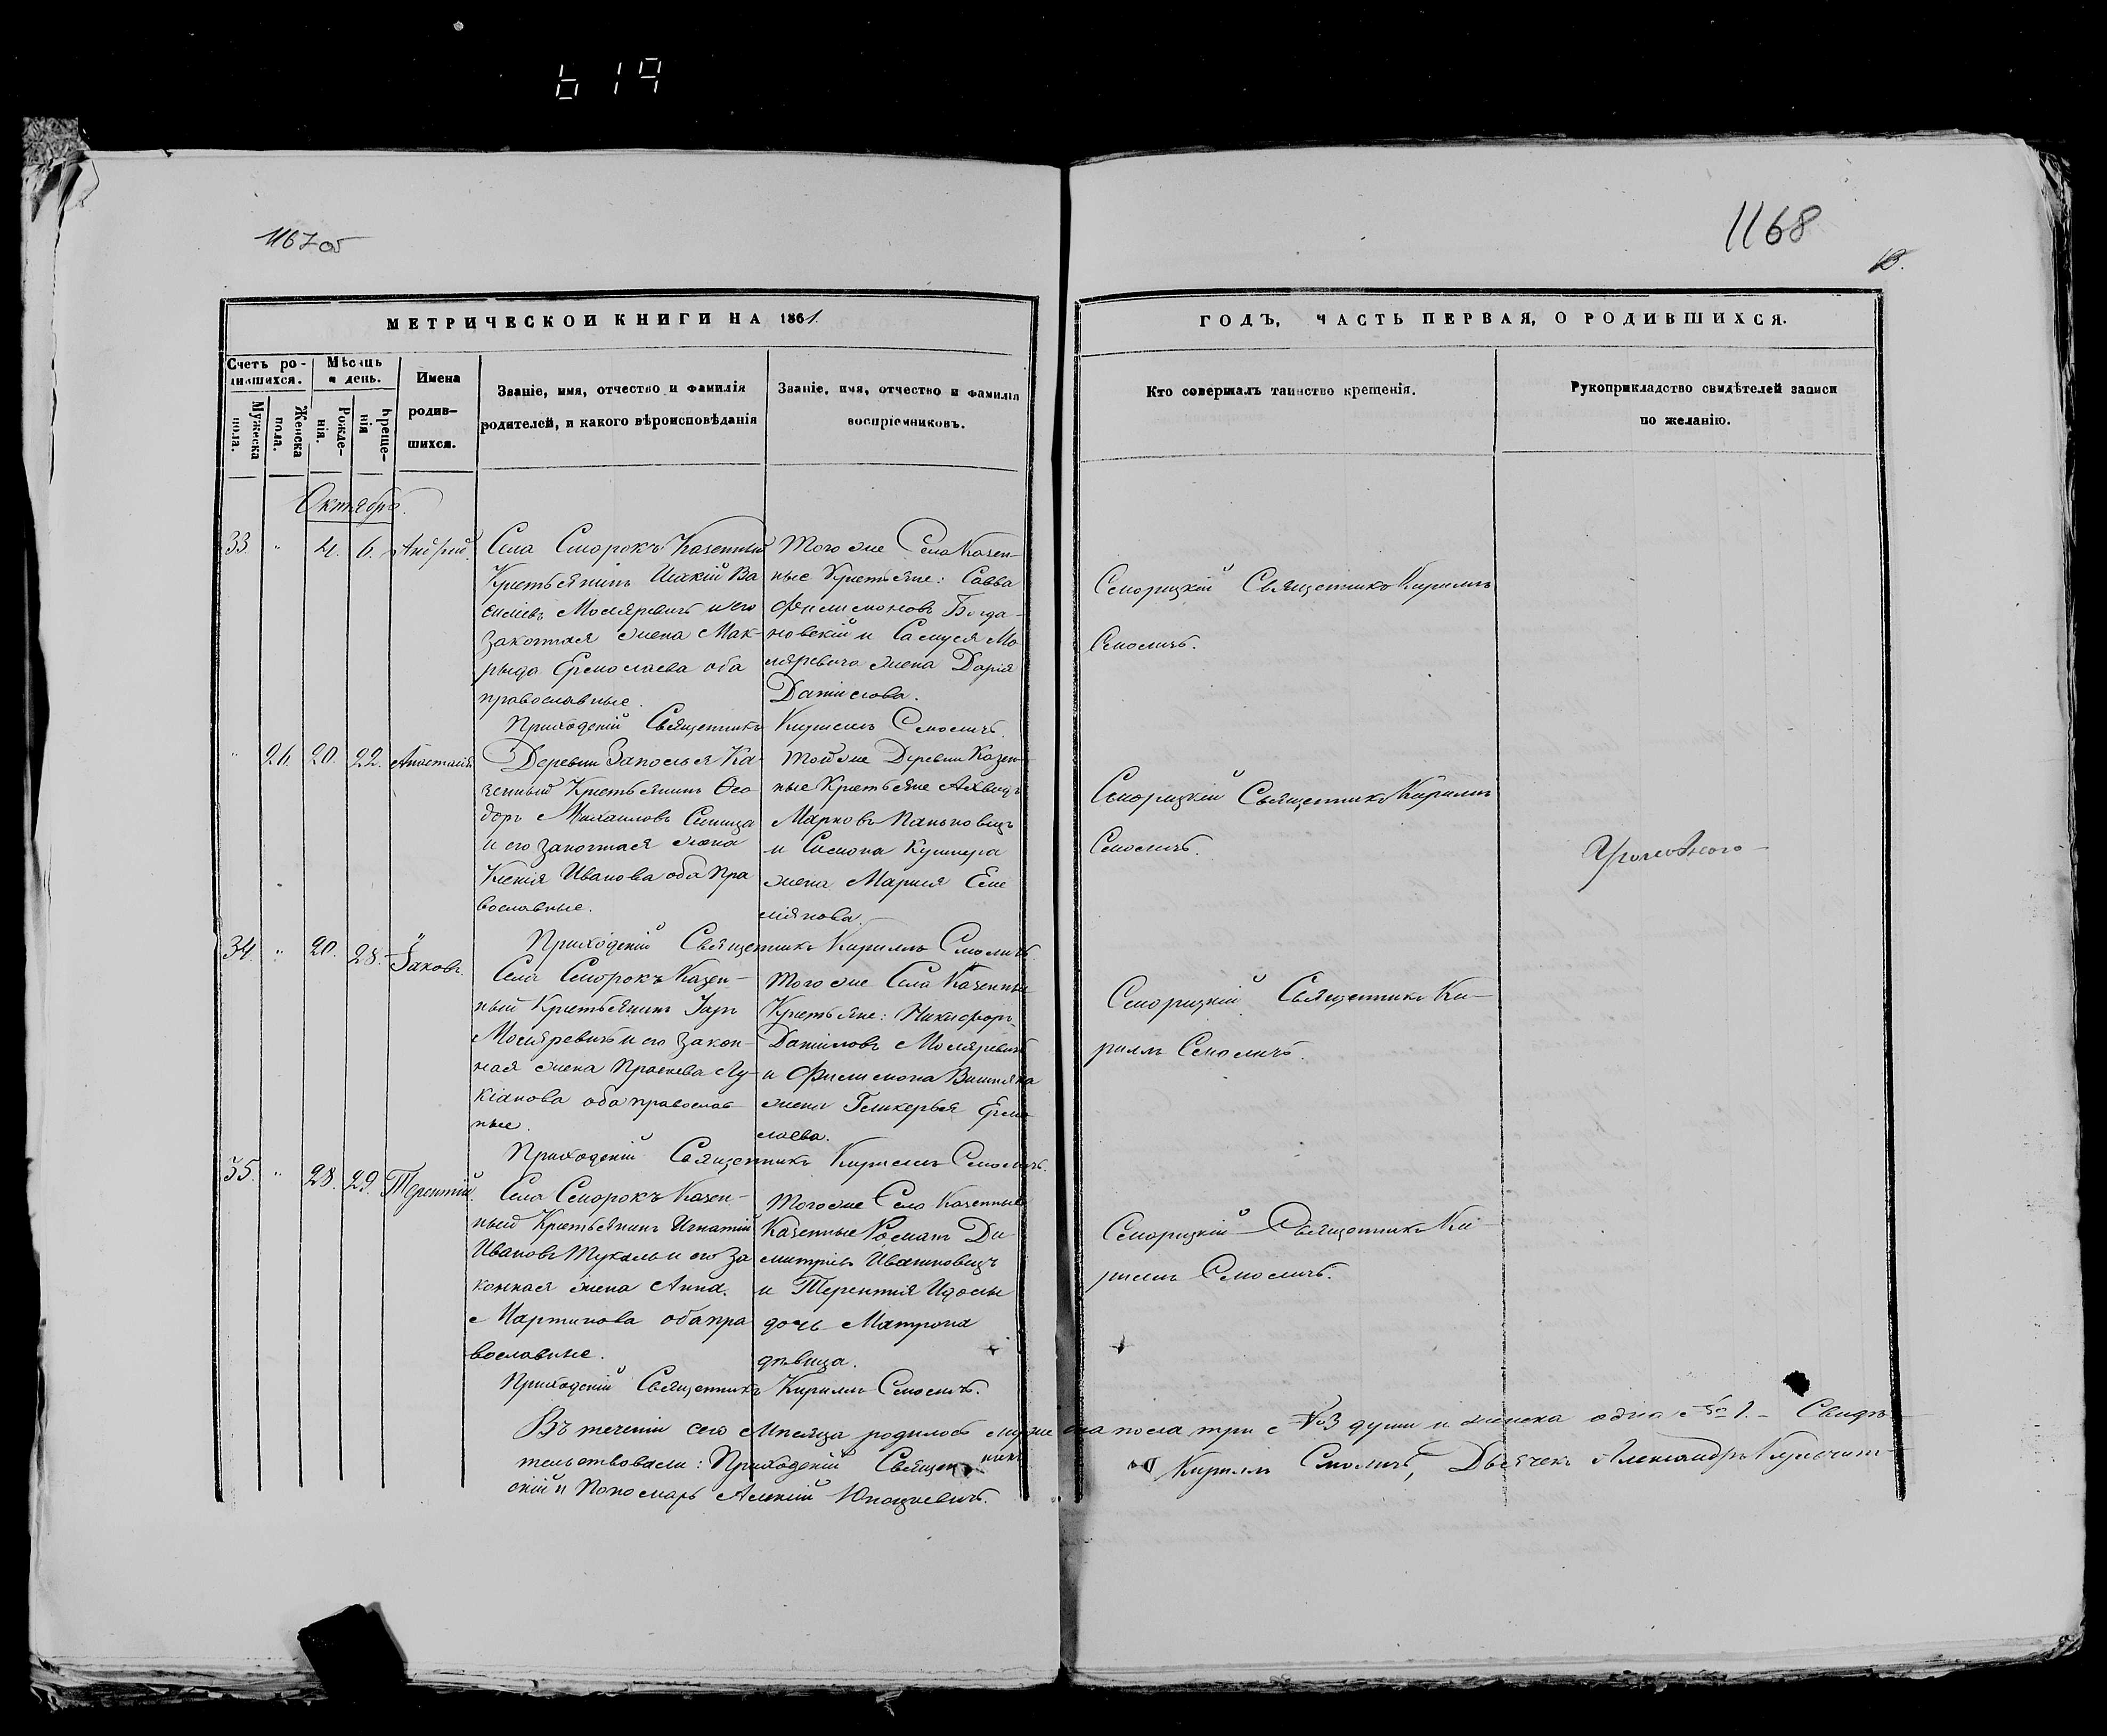 619
1167 об
1168
13.
МЕТРИЧЕСКОЙ КНИГИ НА 1861.
ГОДЪ, ЧАСТЬ ПЕРВАЯ, О РОДИВШИХСЯ.
Счетъ ро-
дившихся.
Мужеска
пола.
Женска
пола.
Мѣсяцъ
и день.
Рожде-
нія.
Креще-
нія
Имена
родив-
шихся.
Званіе, имя, отчество и фамилія
родителей, и какого вѣроисповѣданія
Званіе, имя, отчество и фамилія
воспріемниковъ.
Кто совершалъ таинство крещенія.
Рукоприкладство свидѣтелей записи
по желанію.
Октябрь.
33. " 4. 6. Андрей.
Села Сморокъ Казенный
Крестьянинъ Иакій Ва
силіевъ Моляревичъ и его
законная жена Мак-
рыда Ермолаева оба
православные.
Того же Села Казен-
ные Крестьяне: Савва
Филимоновъ Богда-
новскій и Самуся Мо
ляревича жена Дарія
Данилова.
Приходскій Священникъ Кириллъ Смоличъ.
Сморицкій Священникъ Кириллъ
Смоличъ.
" 26. 20. 22. Анастасія
Деревни Заполья Ка-
зенный Крестьянинъ Ѳео
доръ Михаиловъ Синица
и его законная жена
Ксенія Иванова оба пра
вославные.
Той же Деревни Казен-
ные Крестьяне
Марковъ Паньковецъ
и Симона Кушнера
жена Мария Еме
ліянова.
Приходскій Священникъ Кириллъ Смоличъ.
Сморицкій Священникъ Кириллъ
Смоличъ.
34. " 20. 28. Іаковъ.
Села Сморокъ Казен-
ный Крестьянинъ
Моляревичъ и его закон-
ная жена Праскева Лу-
кіанова оба православ-
ные.
Того же Села Казенные
Крестьяне: Никифоръ
Даниловъ Моляревичъ
и Филимона Вишняка
жена Гликерья Ермо
лаева.
Приходскій Священникъ Кириллъ Смоличъ.
Сморицкій Священникъ Ки-
риллъ Смоличъ.
35. " 28. 29. Терентій.
Села Сморокъ Казен-
ный Крестьянинъ Игнатій
Ивановъ Тукаль и его за
конная жена Анна
Мартинова оба пра
вославные.
Того же Село Казенные
Казенные Романъ Ди-
митріевъ Ивашковецъ
и Терентия
дочь Матрона
дѣвица.
Приходскій Священникъ Кириллъ Смоличъ.
Сморицкій Священникъ Ки-
риллъ Смоличъ.
Въ теченіи сего Мѣсяца родилось мужеска пола три №3 души и женска одна №1. – Свидѣ-
тельствовали: Приходскій Священникъ Кириллъ Смоличъ, Дьячекъ Александръ
скій и Пономарь Алексій Юноцкевичъ.